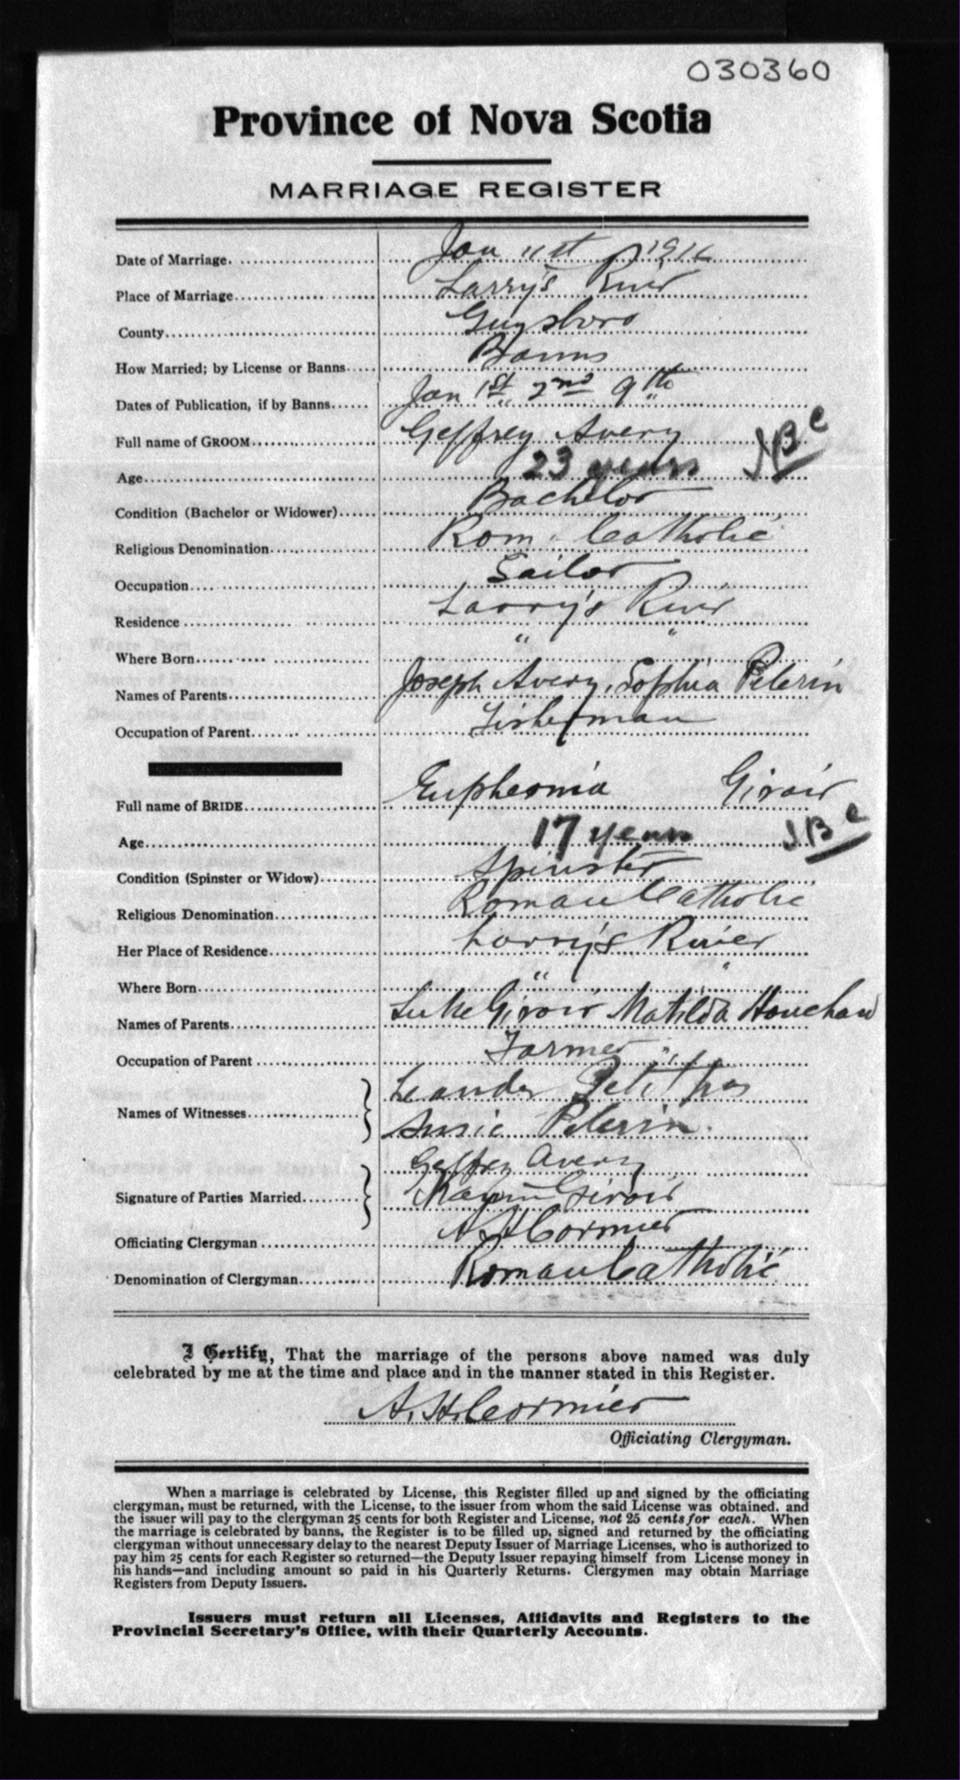 030360
Province of Nova Scotia
MARRIAGE REGISTER
Date of Marriage. Jan 11st
Place of Marriage Larry's River
County Guysboro
How Married; by License or Banns Banns
Dates of Publication, if by Banns Jan 1st 2nd 9th
Full name of GROOM Geffrey Avery
Age 23 years
Condition (Bachelor or Widower) Bachelor
Religious Denomination Rom. Catholic
Occupation Sailor
Residence Larry's River
Where Born " "
Names of Parents Joseph Avery, Sophia Pelerin
Occupation of Parent Fisherman
Full name of BRIDE Euphemia Giroir
Age 17 years
Condition (Spinster or Widow) Spinster
Religious Denomination Roman Catholic
Her Place of Residence Larry's River
Where Born " "
Names of Parents Luke Giroir Matilda
Occupation of Parent Farmer
Names of Witnesses Leander
Susie Pelerin.
Signature of Parties Married Geffrey Avery
Giroir
Officiating Clergyman A. H. Cormier
Denomination of Clergyman Roman Catholic
I Certify, That the marriage of the persons above named was duly
celebrated by me at the time and place and in the manner stated in this Register.
A. H. Cormier
Officiating Clergyman.
When a marriage is celebrated by License, this Register filled up and signed by the officiating
clergyman, must be returned, with the License, to the issuer from whom the said License was obtained, and
the issuer will pay to the clergyman 25 cents for both Register and License, not 25 cents for each. When
the marriage is celebrated by banns, the Register is to be filled up, signed and returned by the officiating
clergyman without unnecessary delay to the nearest Deputy Issuer of Marriage Licenses, who is authorized to
pay him 25 cents for each Register so returned—the Deputy Issuer repaying himself from License money in
his hands—and including amount so paid in his Quarterly Returns. Clergymen may obtain Marriage
Registers from Deputy Issuers.
Issuers must return all Licenses, Affidavits and Registers to the
Provincial Secretary's Office, with their Quarterly Accounts.